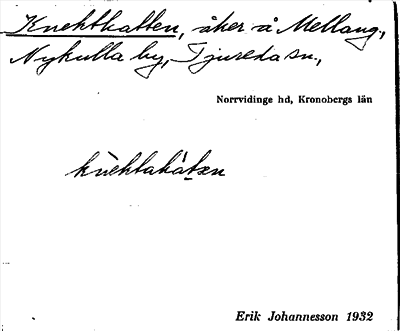 Knehtkatten, åker å Mellang,
Nykulla by, Tjureda sn.,
Norrvidinge hd, Kronobergs län
knèhtakátən
Erik Johannesson 1932